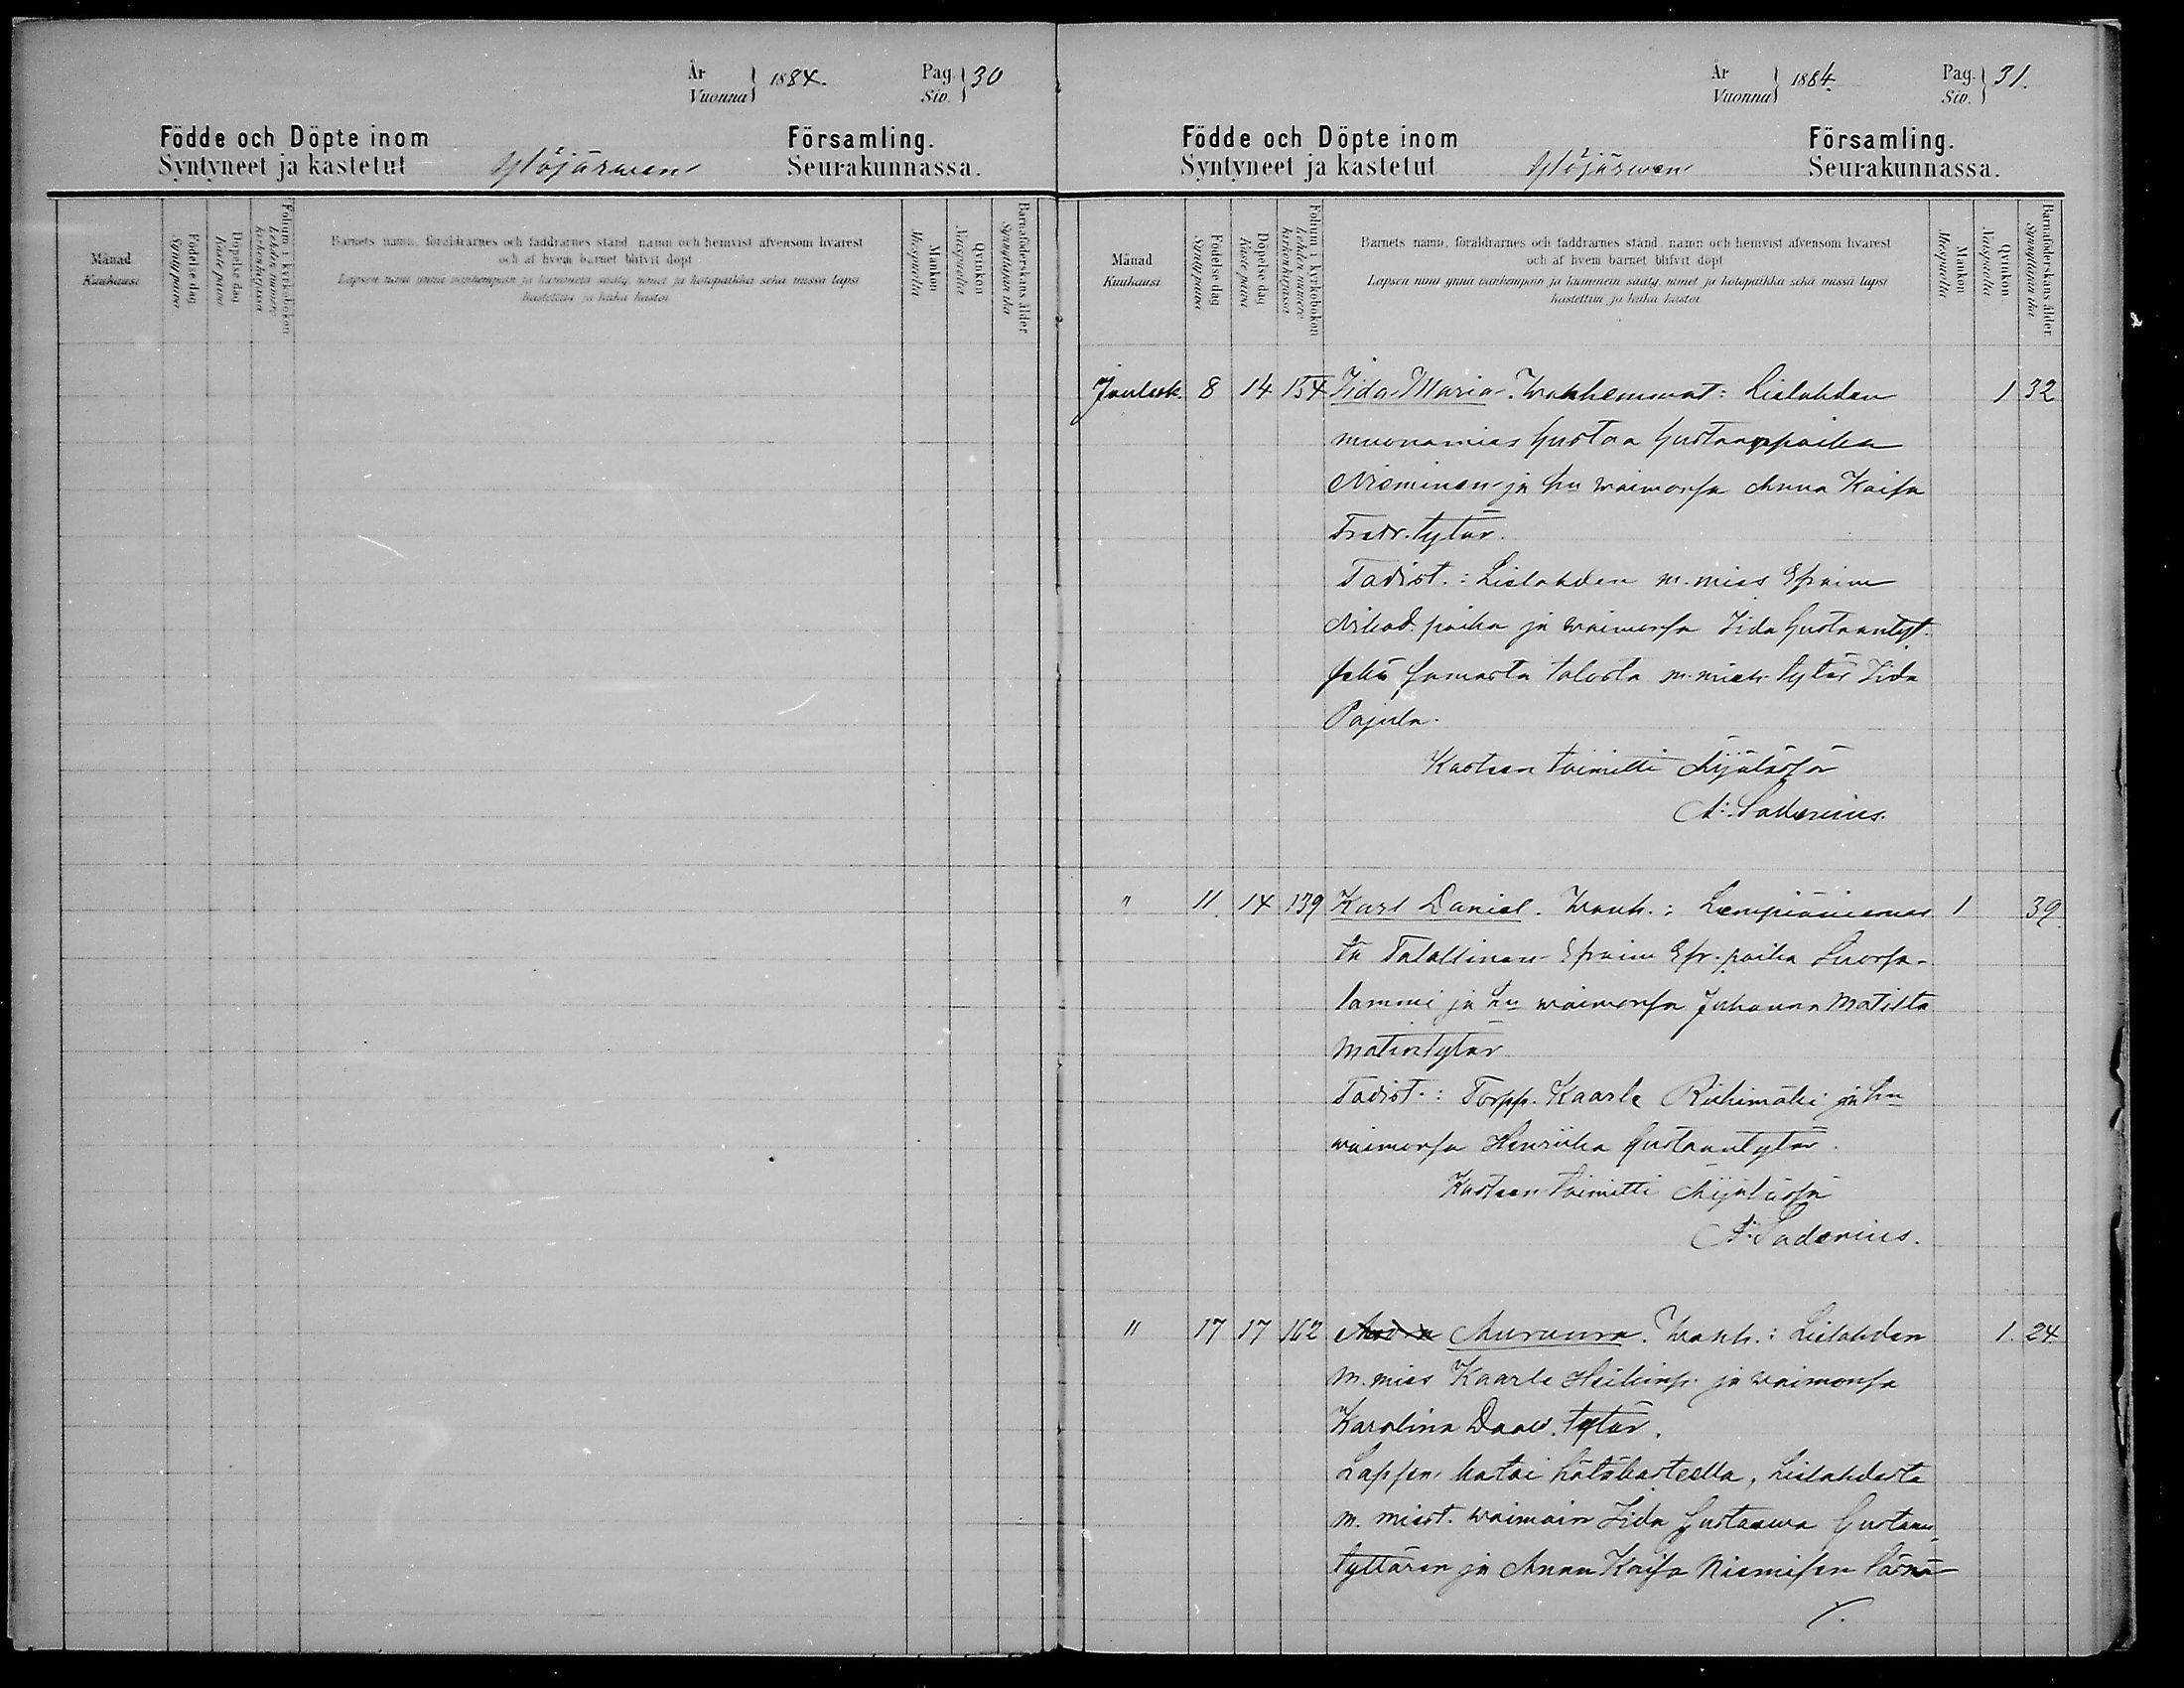 År
Vuonna } 1884.
Pag.
Siv. } 30
Födde och Döpte inom Församling.
Syntyneet ja kastetut Ylöjärwen Seurakunnassa.
Månad
Kuukausi
Födelse dag
Syntypäivä
Döpelse dag
Kaste päivä
Folium i kyrkoboken
Lehden numero
kirkonkirjassa
Barnets namn, föräldrarnes och faddrarnes stånd, namn och hemvist äfvensom hvarest
och af hvem barnet blifvit döpt
Lapsen nimi ynnä vanhempain ja kummein sääty, nimet ja kotopaikka sekä missä lapsi
kastettiin ja kuka kastoi
Mankön
Miespuolia
Qvinkön
Naispuolia
Barnaföderskans ålder
Synnyttäjän ikä
År
Vuonna } 1884.
Pag.
Siv. } 31.
Födde och Döpte inom Församling.
Syntyneet ja kastetut Ylöjärwen Seurakunnassa.
Månad
Kuukausi
Födelse dag
Syntypäivä
Döpelse dag
Kaste päivä
Folium i kyrkoboken
Lehden numero
kirkonkirjassa
Barnets namn, föräldrarnes och faddrarnes stånd, namn och hemvist äfvensom hvarest
och af hvem barnet blifvit döpt
Lapsen nimi ynnä vanhempain ja kummein sääty, nimet ja kotopaikka sekä missä lapsi
kastettiin ja kuka kastoi
Mankön
Miespuolia
Qvinkön
Naispuolia
Barnaföderskans ålder
Synnyttäjän ikä
Jouluk. 8 14 154 Iida Maria. Wanhemmat: Lielahden 1 32
muonamies Gustaa Gustaanpoika
Nieminen ja hn waimonsa Anna Kaisa
Fredr. tytär.
Todist.: Lielahden m. mies Efraim
Nikod. poika ja waimonsa Iida Gustaantyt.
sekä samasta talosta m. mieh. tytär Iida
Pajula.
Kasteen toimitti Kyläsä
A. Sadenius.
" 11. 14 139 Karl Daniel. Wanh.: Lempiäniemes 1 39.
tä Talollinen Efraim Efr. poika Suorsa-
lammi ja hn waimonsa Johanna Matilta
Matintytär
Todist.: Torpp. Kaarle Riihimäki ja hn
waimonsa Henriika Gustaantytär.
Kasteen toimitti
A. Sadenius.
" 17 17 162 Auruura. Wanh.: Lielahden 1. 24.
m. mies Kaarle Heikinp. ja waimonsa
Karolina Daav. tytär.
Lapsen kastoi hätäkasteella, Lielahdesta
m. miest. waimoin Iida Gustaawa Gustaan
tyttären ja Anna Kaisa Niemisen läsnä